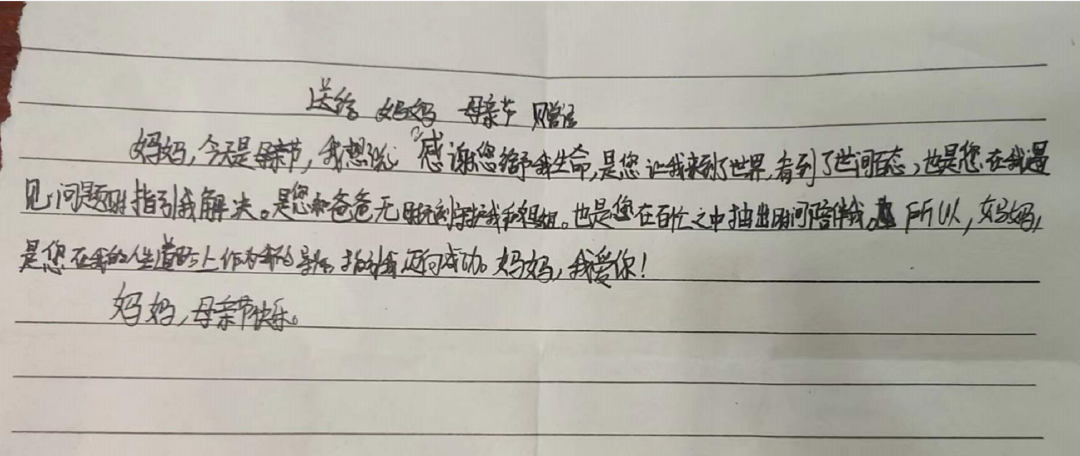 送给 妈妈 母亲节 赠言
妈妈,今天是母亲节,我想说:“感谢您给予我生命,是您让我来到了世界,看到了世间百态,也是您在我遇
见问题时指引我解决。是您和爸爸无时无刻守护我和姐姐。也是您在百忙之中抽出时间陪伴我。所以,妈妈,
是您在我的人生道路上作为我的导师,指引我迈向成功。妈妈,我爱你!
妈妈,母亲节快乐。